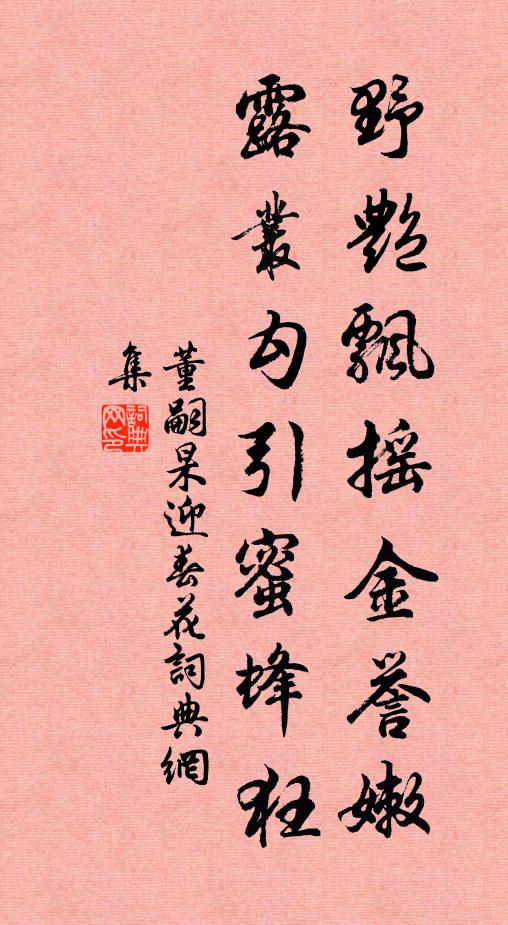 野艷飄搖金譽嫩
露叢勾引蜜蜂狂
董嗣杲迎春花詞典網
集
詞典
网印